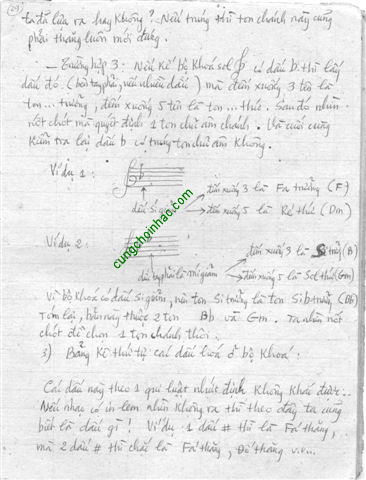 (29)
ta đã lựa ra hay không? Nếu trúng thì tôn chánh này cũng
phải thăng luôn mới đúng.
- Trường hợp 3: Nếu kế bộ khoá sol có dấu b thì lấy
dấu đó (bên tay phải, nếu nhiều dấu) mà đếm xuống 3 tên là
tôn... trưởng, đếm xuống 5 tên là tôn... thứ. Sau đó nhìn
nốt chót mà quyết định 1 tôn chủ âm chánh. Và cuối cùng
kiểm tra lại dấu b có trúng tôn chủ âm không.
Ví dụ 1:
đếm xuống 3 là Fa trưởng (F)
dấu Si giảm
đếm xuống 5 là Ré thứ (Dm)
Ví dụ 2:
đếm xuống 3 là Si trưởng (B)
dấu tay phải là mi giảm
đếm xuống 5 là Sol thứ (Gm)
Vì bộ khoá có dấu Si giảm, nên tôn Si trưởng là tôn Si b trưởng (Bb)
Tóm lại, bản này thuộc 2 tôn Bb và Gm. Ta nhìn nốt
chót để chọn 1 tôn chánh thôi.
3) Bảng kê thứ tự các dấu hoá ở bộ khoá:
Các dấu này theo 1 qui luật nhứt định không khác được..
Nếu nhạc có in lem nhìn không ra thì theo đây ta cũng
biết là dấu gì! Ví dụ 1 dấu # thì là Fá thăng,
mà 2 dấu # thì chắc là Fá thăng, Đô thăng v.v...
cungchoinhac.com